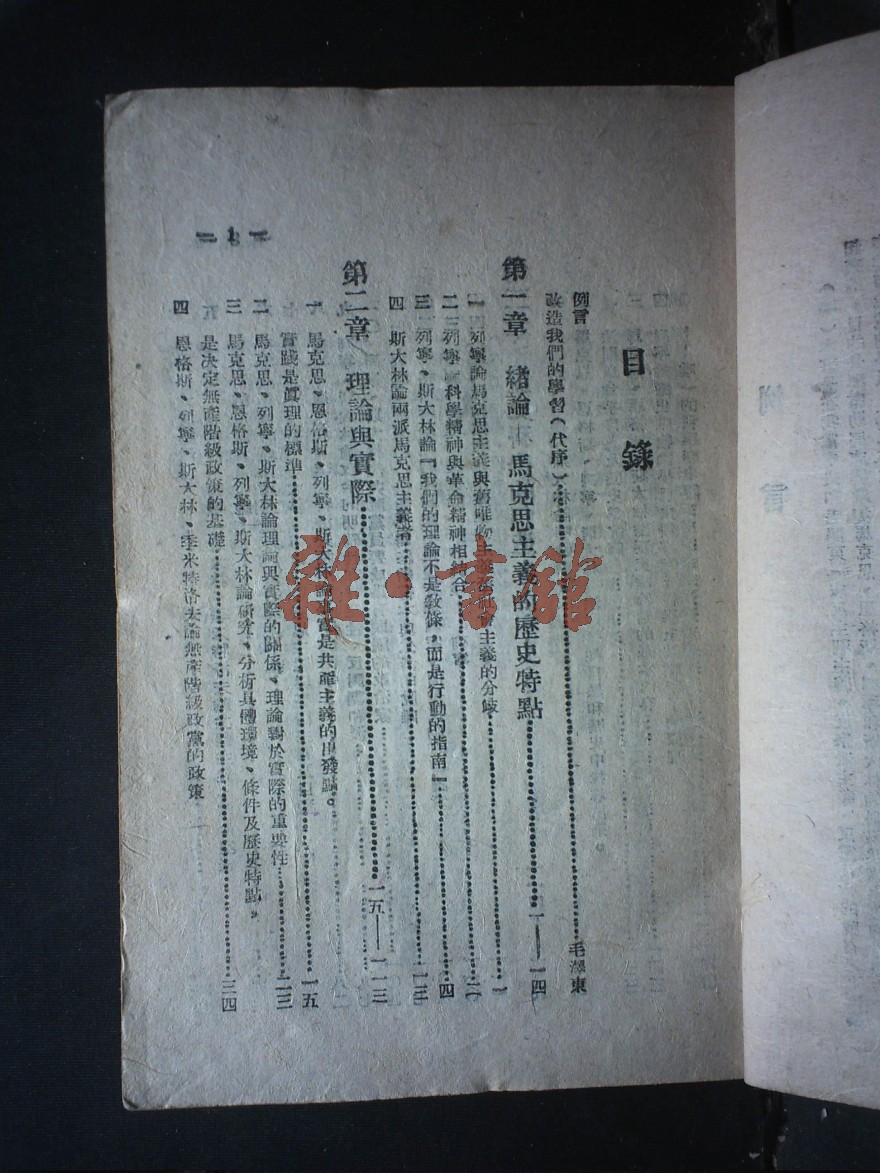 目錄
例言
改造我們的學習（代序）……毛澤東
第一章 緒論──馬克思主義的歷史特點……一──一四
一 列寧論馬克思主義與舊唯物主義 主義的分歧……一
二 列寧──科學精神與革命精神相結合……四
三 列寧、斯大林論『我們的理論不是教條，而是行動的指南』……一三
四 斯大林論兩派馬克思主義者
第二章 理論與實際……一五──一一三
一 馬克思、恩格斯、列寧、斯大林論 是共產主義的出發點。
實踐是眞理的標準……一五
二 馬克思、列寧、斯大林論理論與實際的關係、理論對於實際的重要性……二三
三 馬克思、恩格斯、列寧、斯大林論研究、分析具體環境、條件及歷史特點，
是決定無產階級政策的基礎……三四
四 恩格斯、列寧、斯大林、季米特洛夫論無產階級政黨的政策
— 1 —
雜·書館
例言